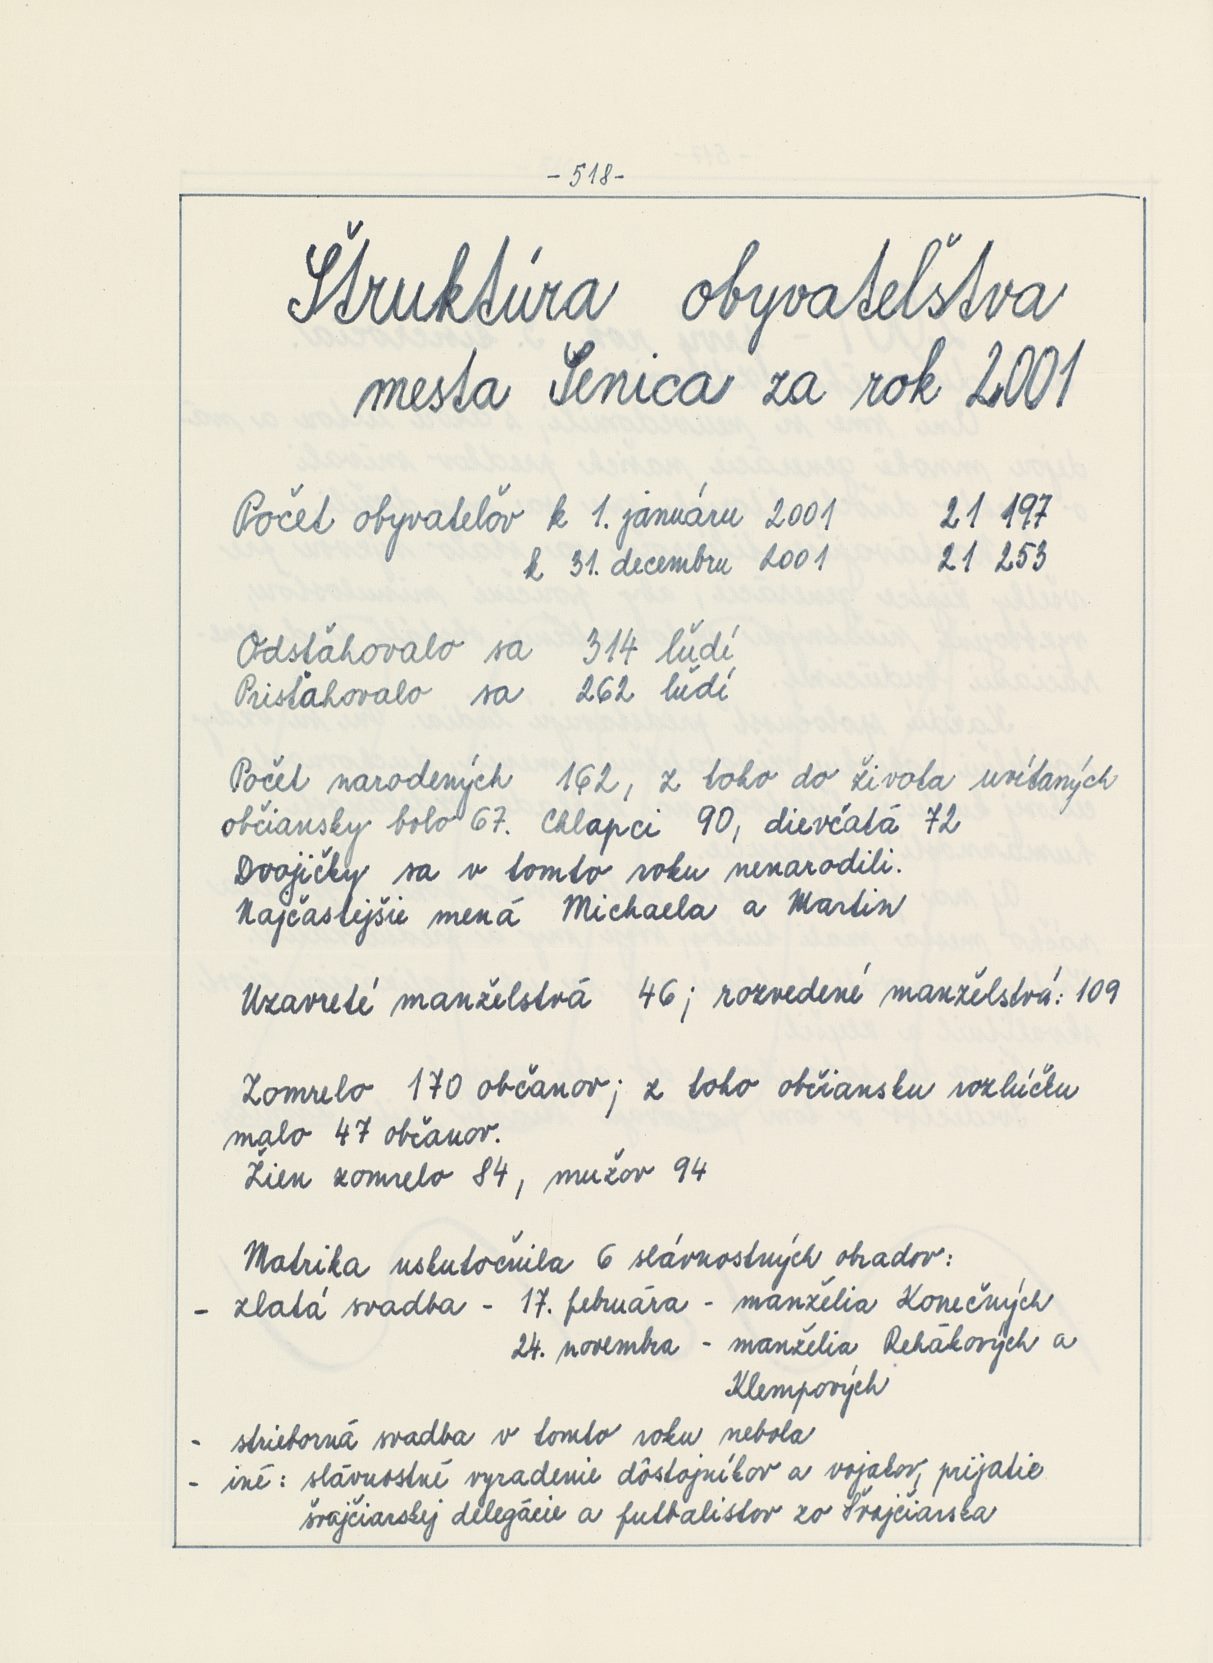 - 518 -
Štruktúra obyvateľstva
mesta Senica za rok 2001
Počet obyvateľov k 1. januáru 2001 21 197
k 31. decembru 2001 21 253
Odsťahovalo sa 314 ľudí
Prisťahovalo sa 262 ľudí
Počet narodených 162, z toho do života uvítaných
občiansky bolo 67. Chlapci 90, dievčatá 72
Dvojičky sa v tomto roku nenarodili.
Najčastejšie mená Michaela a Martin
Uzavreté manželstvá 46; rozvedené manželstvá: 109
Zomrelo 170 občanov; z toho občiansku rozlúčku
malo 47 občanov.
Žien zomrelo 84, mužov 94
Matrika uskutočnila 6 slávnostných obradov:
- zlatá svadba - 17. februára - manželia Konečných
24. novembra - manželia Rehákových a
Klempových
- strieborná svadba v tomto roku nebola
- iné: slávnostné vyradenie dôstojníkov a vojakov, prijatie
švajčiarskej delegácie a futbalistov zo Švajčiarska